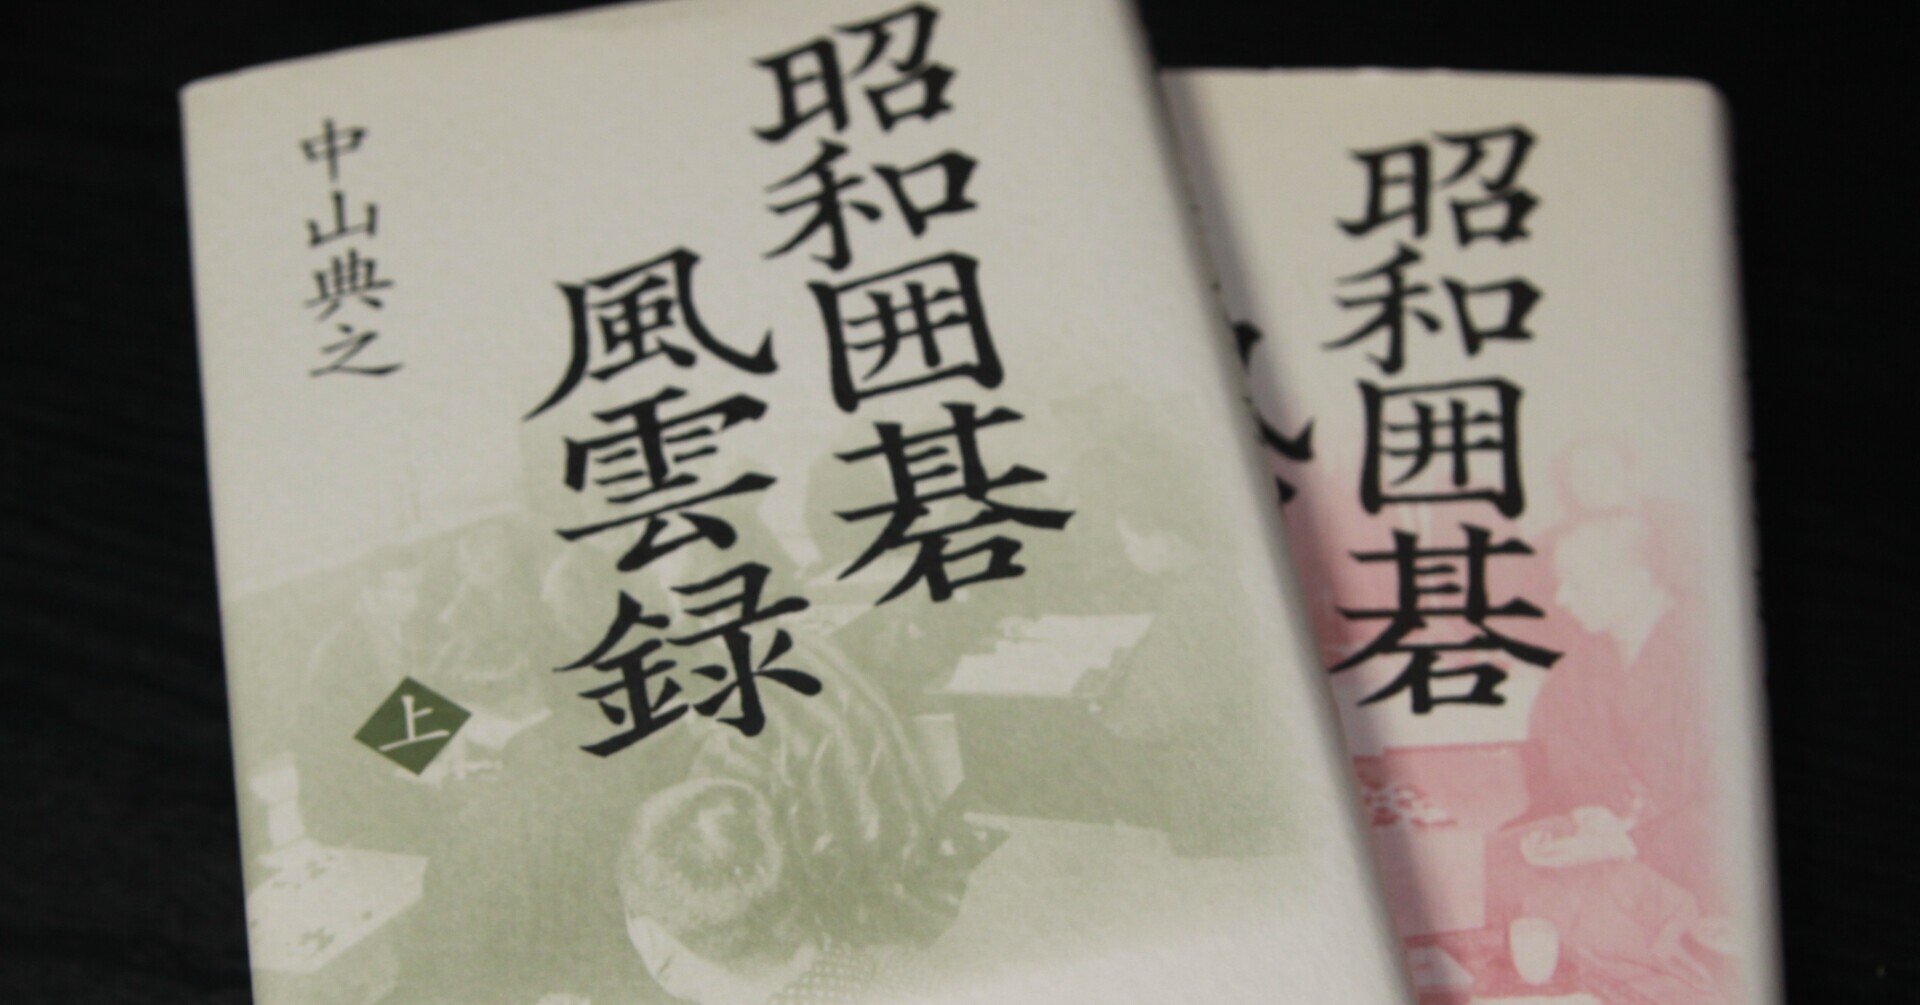 昭和囲碁
風雲録
中山典之
上
昭和囲碁